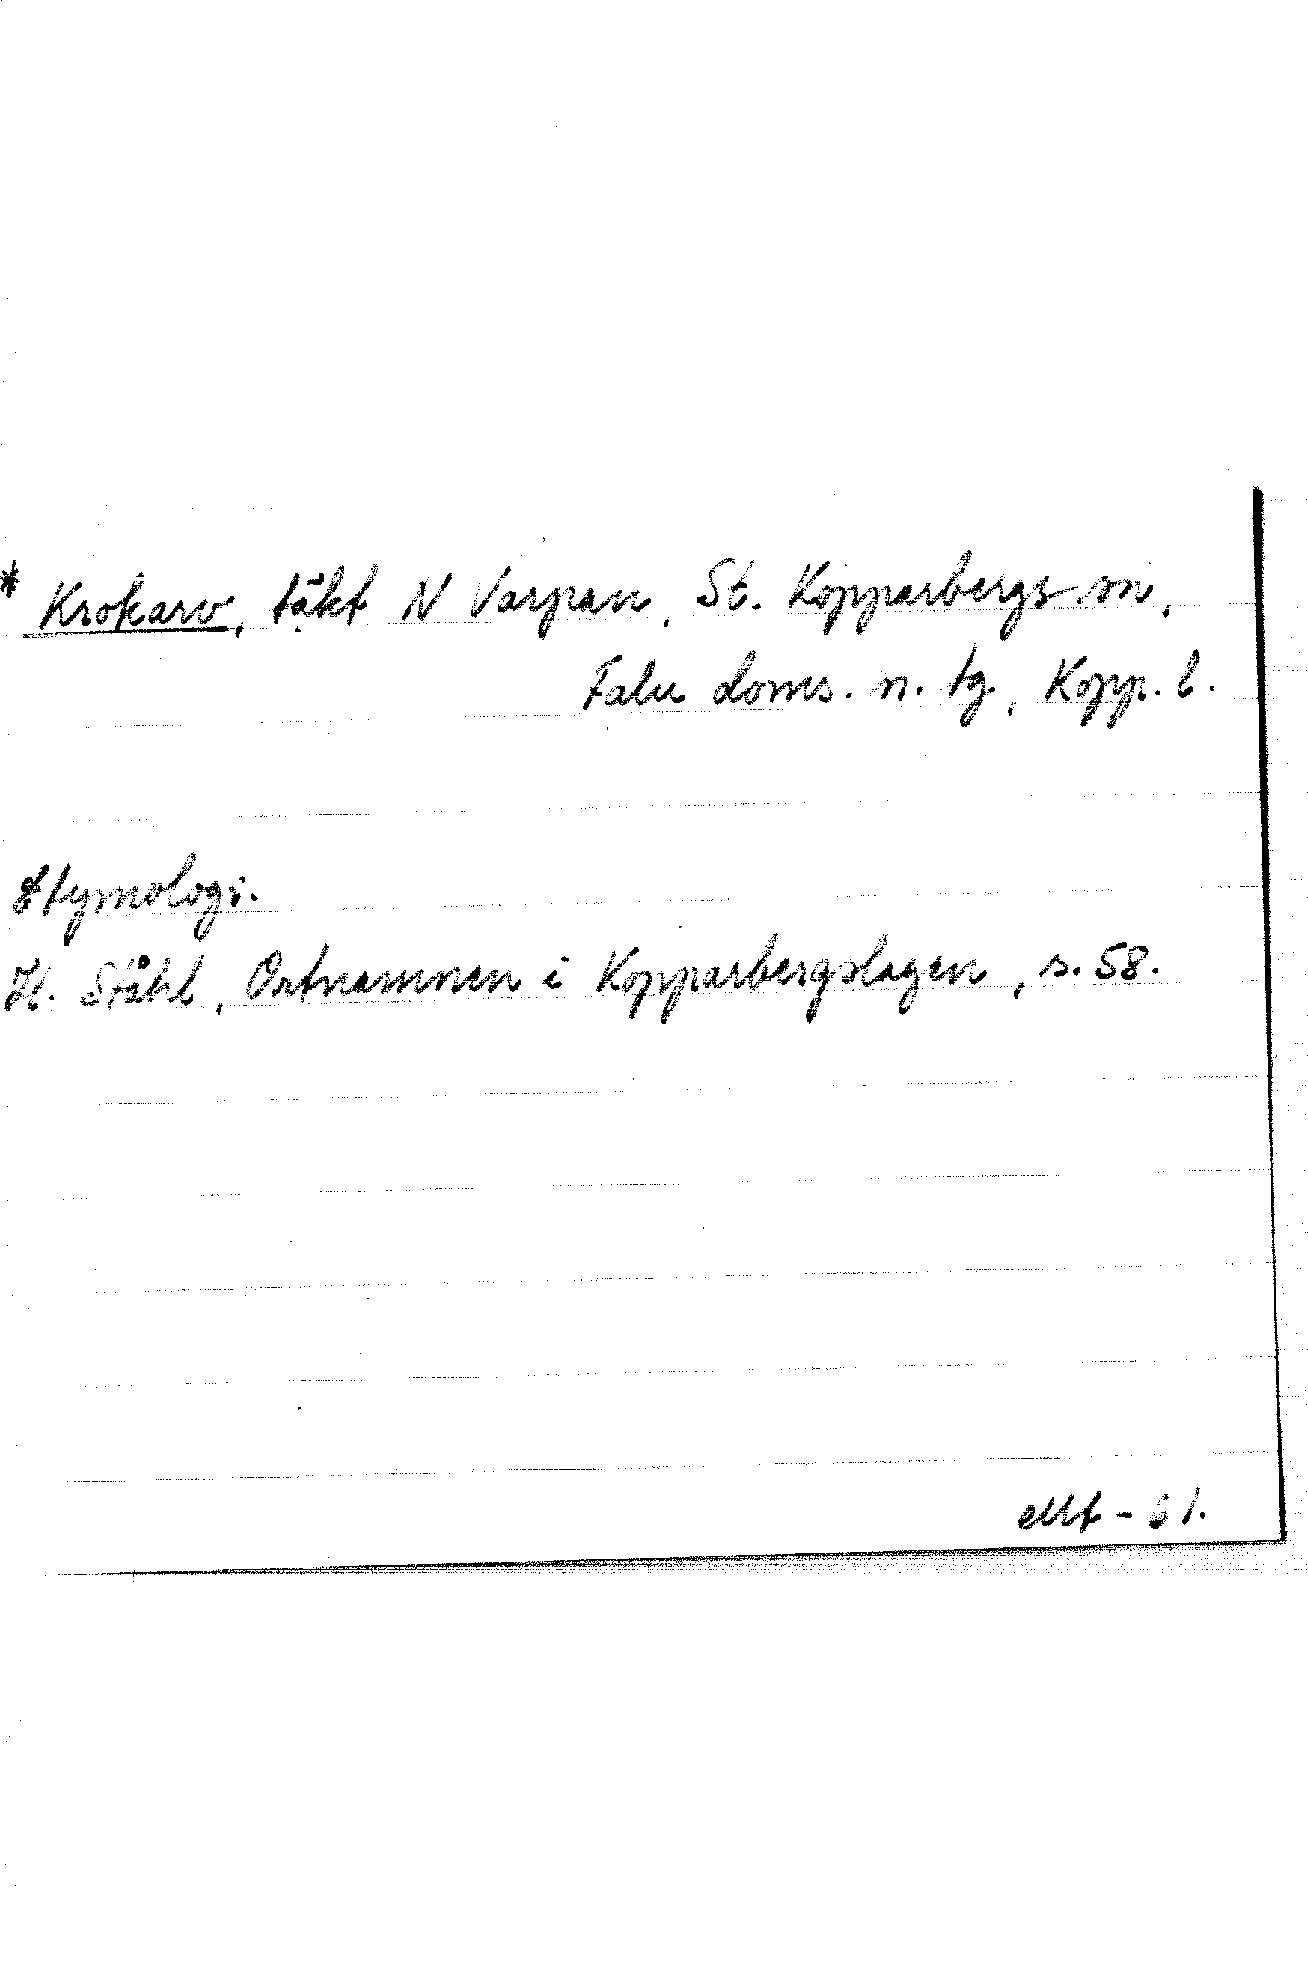 * Krokarv, täkt N Varpan, St. Kopparbergs sn,
Falu doms. n. tg, Kopp. l.
Etymologi.
H. Ståhl, Ortnamnen i Kopparbergslagen, s. 58.
- 61.